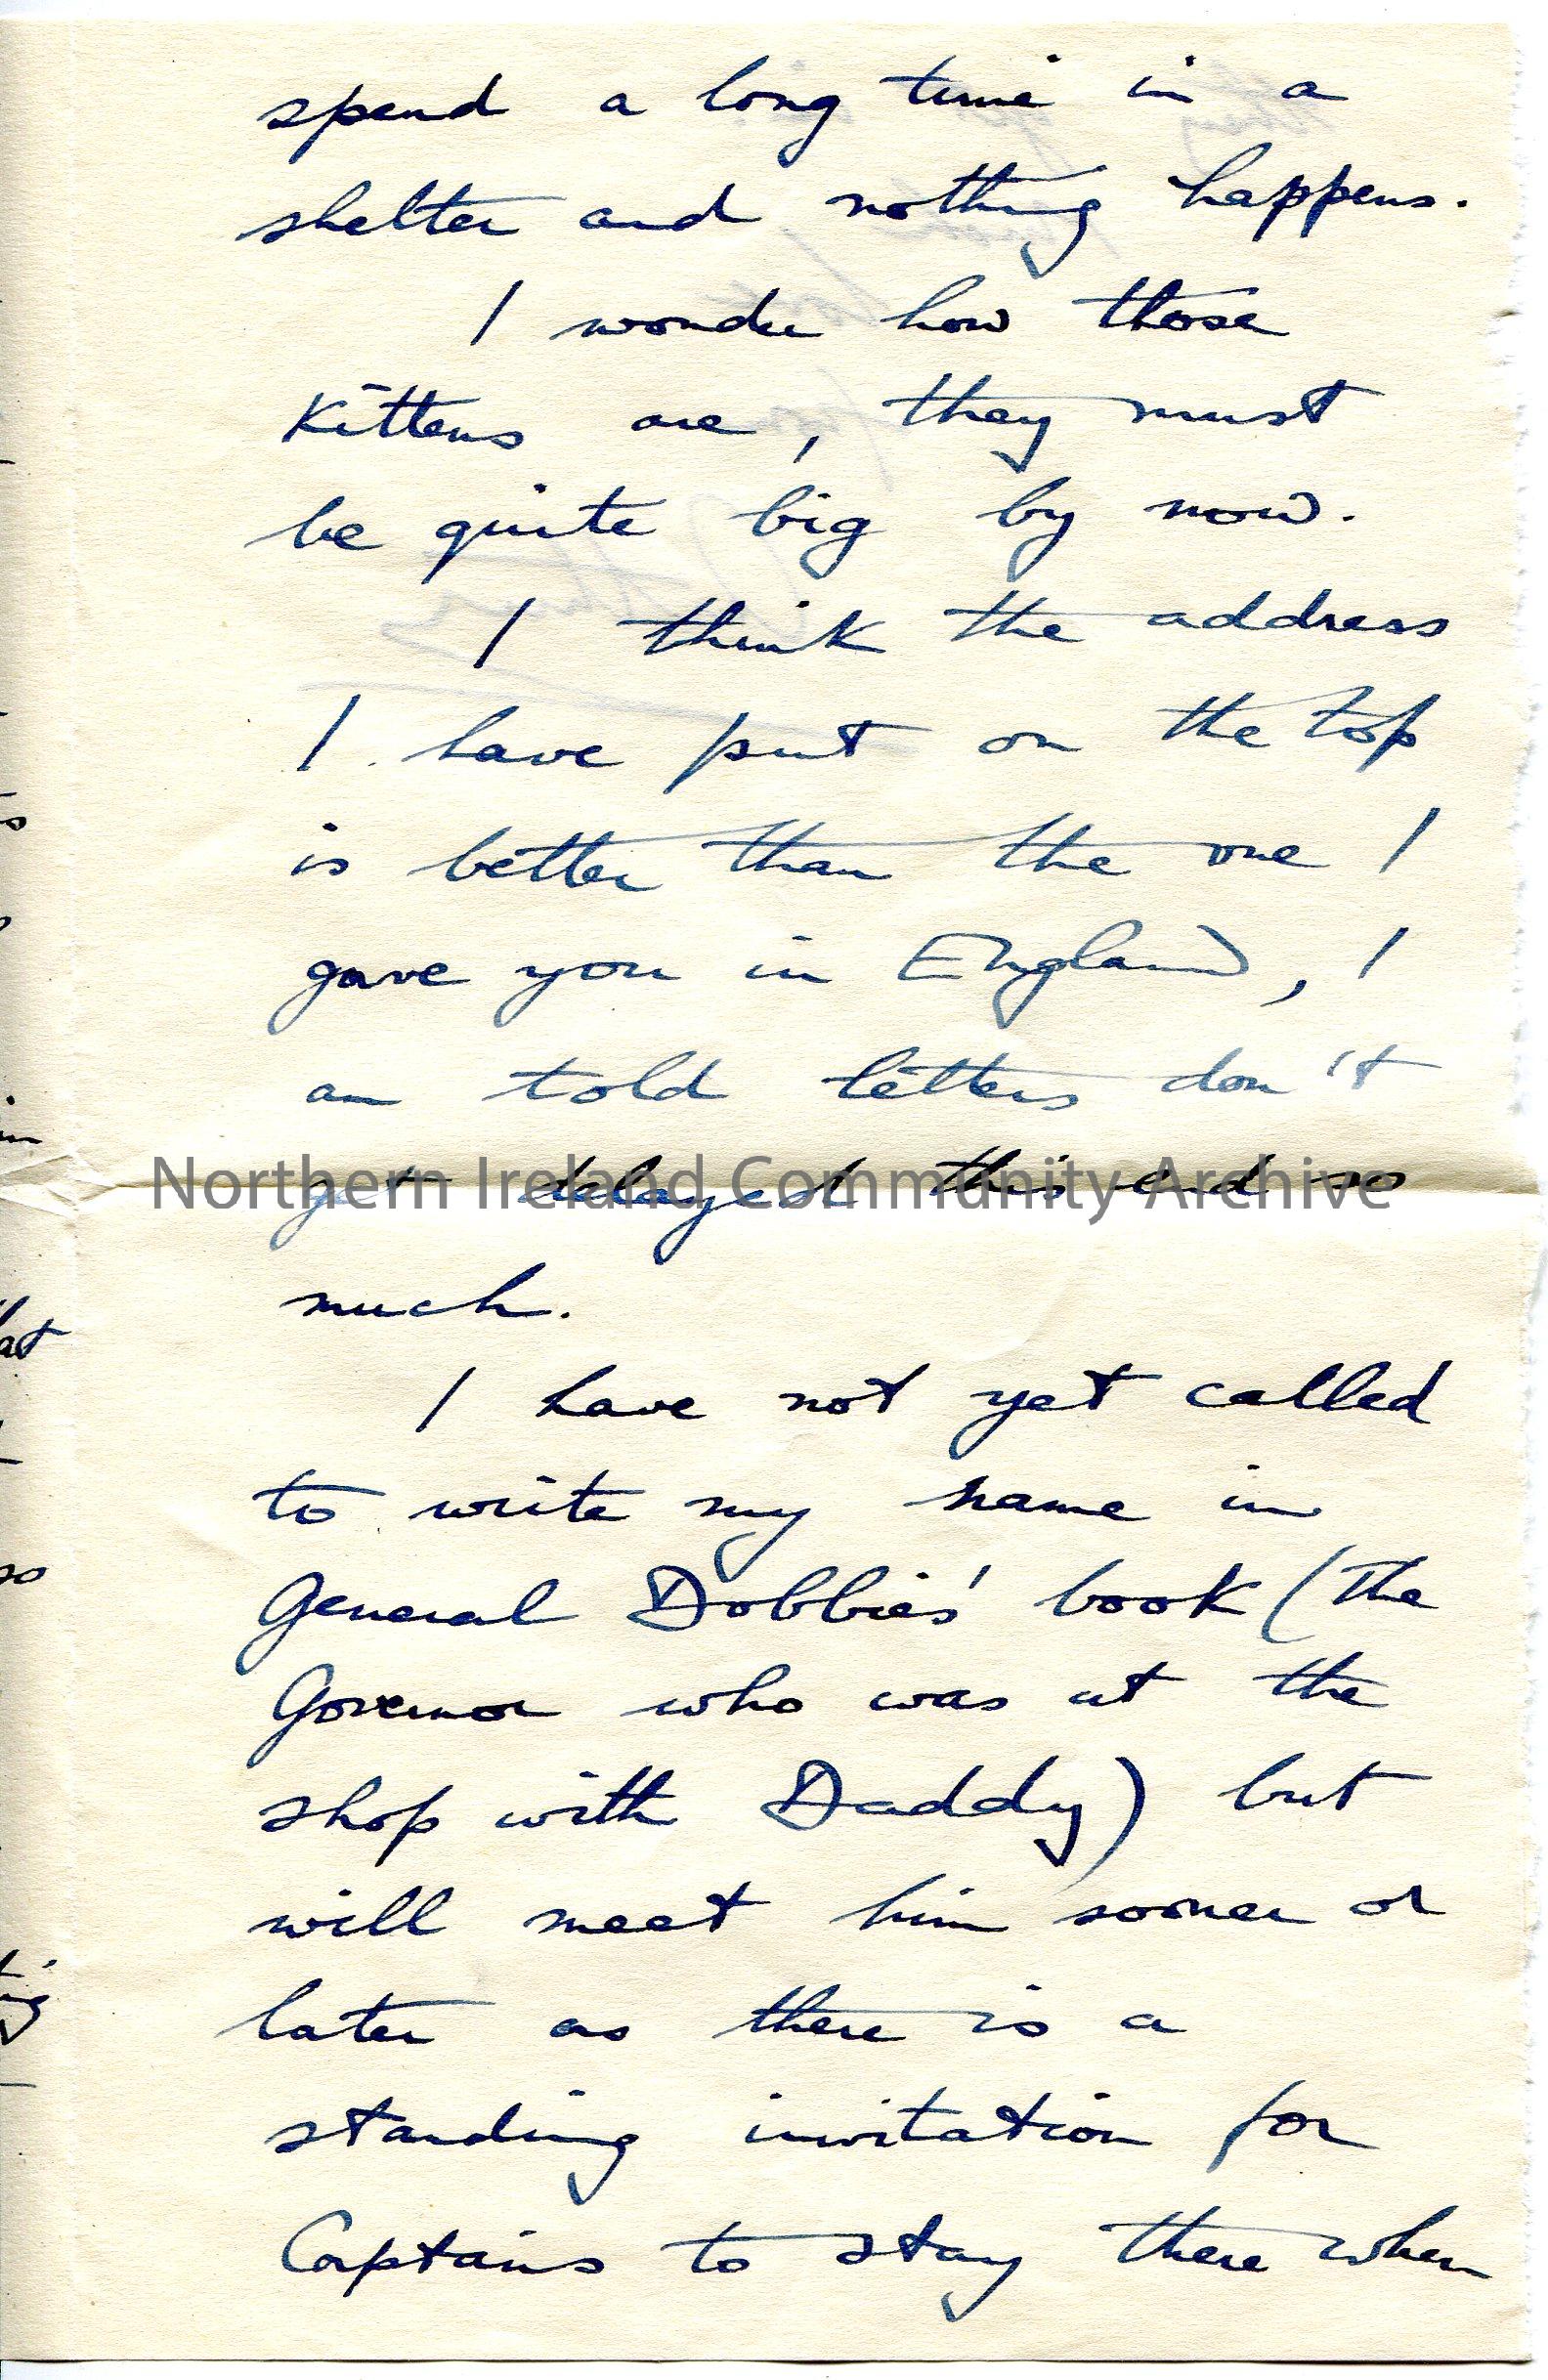 spend a long time in a
shelter and nothing happens.
I wonder how those
Kittens are, they must
be quite big by now.
I think the address
I have put on the top
is better than the one I
gave you in England, I
am told letters don't
get delayed this end so
much.
I have not yet called
to write my name in
General Dobbies' book (The
Governor who was at the
shop with Daddy) but
will meet him sooner or
later as there is a
standing invitation for
Captains to stay there when
Northern Ireland Community Archive